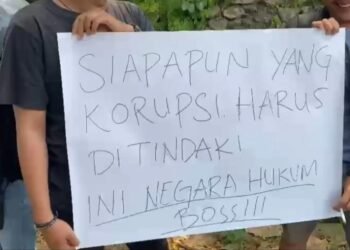 SIAPAPUN YANG
KORUPSI HARUS
DITINDAKI
INI NEGARA HUKUM
BOSS!!!